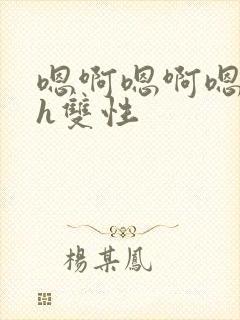 嗯啊嗯啊嗯
h雙性
楊某鳳